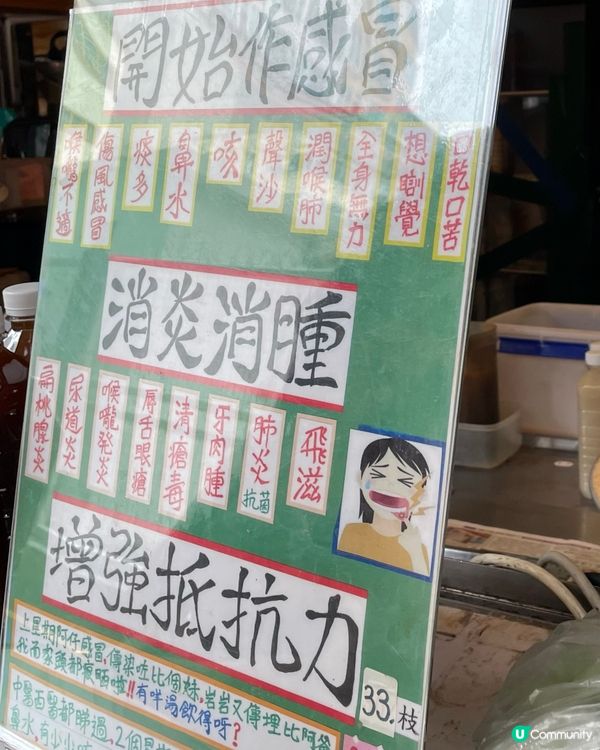 開始作感冒
口乾口苦
想瞓覺
全身無力
潤喉肺
聲沙
咳
鼻水
痰多
傷風感冒
喉嚨不適
消炎消腫
飛滋
肺炎
抗菌
牙肉腫
清瘡毒
唇舌眼瘡
喉嚨發炎
尿道炎
扁桃腺炎
增強抵抗力
上星期阿仔感冒，傳染咗比個妹，岩岩又傳埋比阿爸
我而家頭都痕晒啦!!有咩湯飲得呀?
中醫西醫都睇過，2個星
鼻水，有少少咳
33.枝
U Community